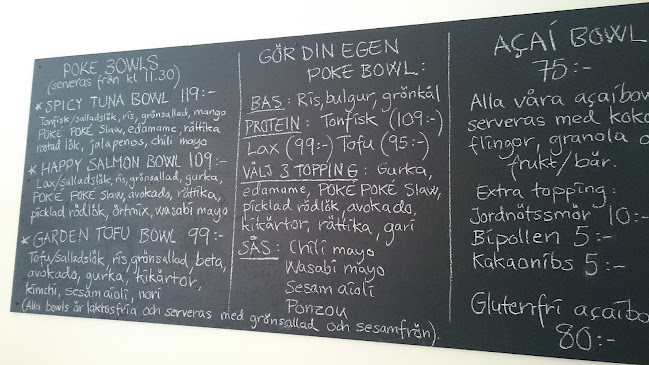 POKE BOWLS
(serveras från kl 11.30)
* SPICY TUNA BOWL 119:-
Tonfisk/salladslök, ris, grönsallad, mango
POKÉ POKÉ Slaw, edamame, rättika
rostad lök, jalapenos, chili mayo
* HAPPY SALMON BOWL 109:-
Lax/salladslök, ris, grönsallad, gurka,
POKÉ POKÉ Slaw, avokado, rättika,
picklad rödlök, örtmix, wasabi mayo
* GARDEN TOFU BOWL 99:-
Tofu/salladslök, ris, grönsallad, beta,
avokado, gurka, kikärtor,
kimchi, sesam aioli, nori
(Alla bowls är laktosfria och serveras med grönsallad och sesamfrön).
GÖR DIN EGEN
POKE BOWL:
BAS: Ris, bulgur, grönkål
PROTEIN: Tonfisk (109:-)
Lax (99:-) Tofu (95:-)
VÄLJ 3 TOPPING: Gurka,
edamame, POKÉ POKÉ Slaw,
picklad rödlök, avokado,
kikärtor, rättika, gari
SÅS: Chili mayo
Wasabi mayo
Sesam aioli
Ponzou
AÇAÍ BOWL
75:-
Alla våra açaíbow
serveras med koko
flingor, granola o
frukt/bär.
Extra topping:
Jordnötssmör 10:-
Bipollen 5:-
Kakaonibs 5:-
Glutenfri açaíbo
80:-